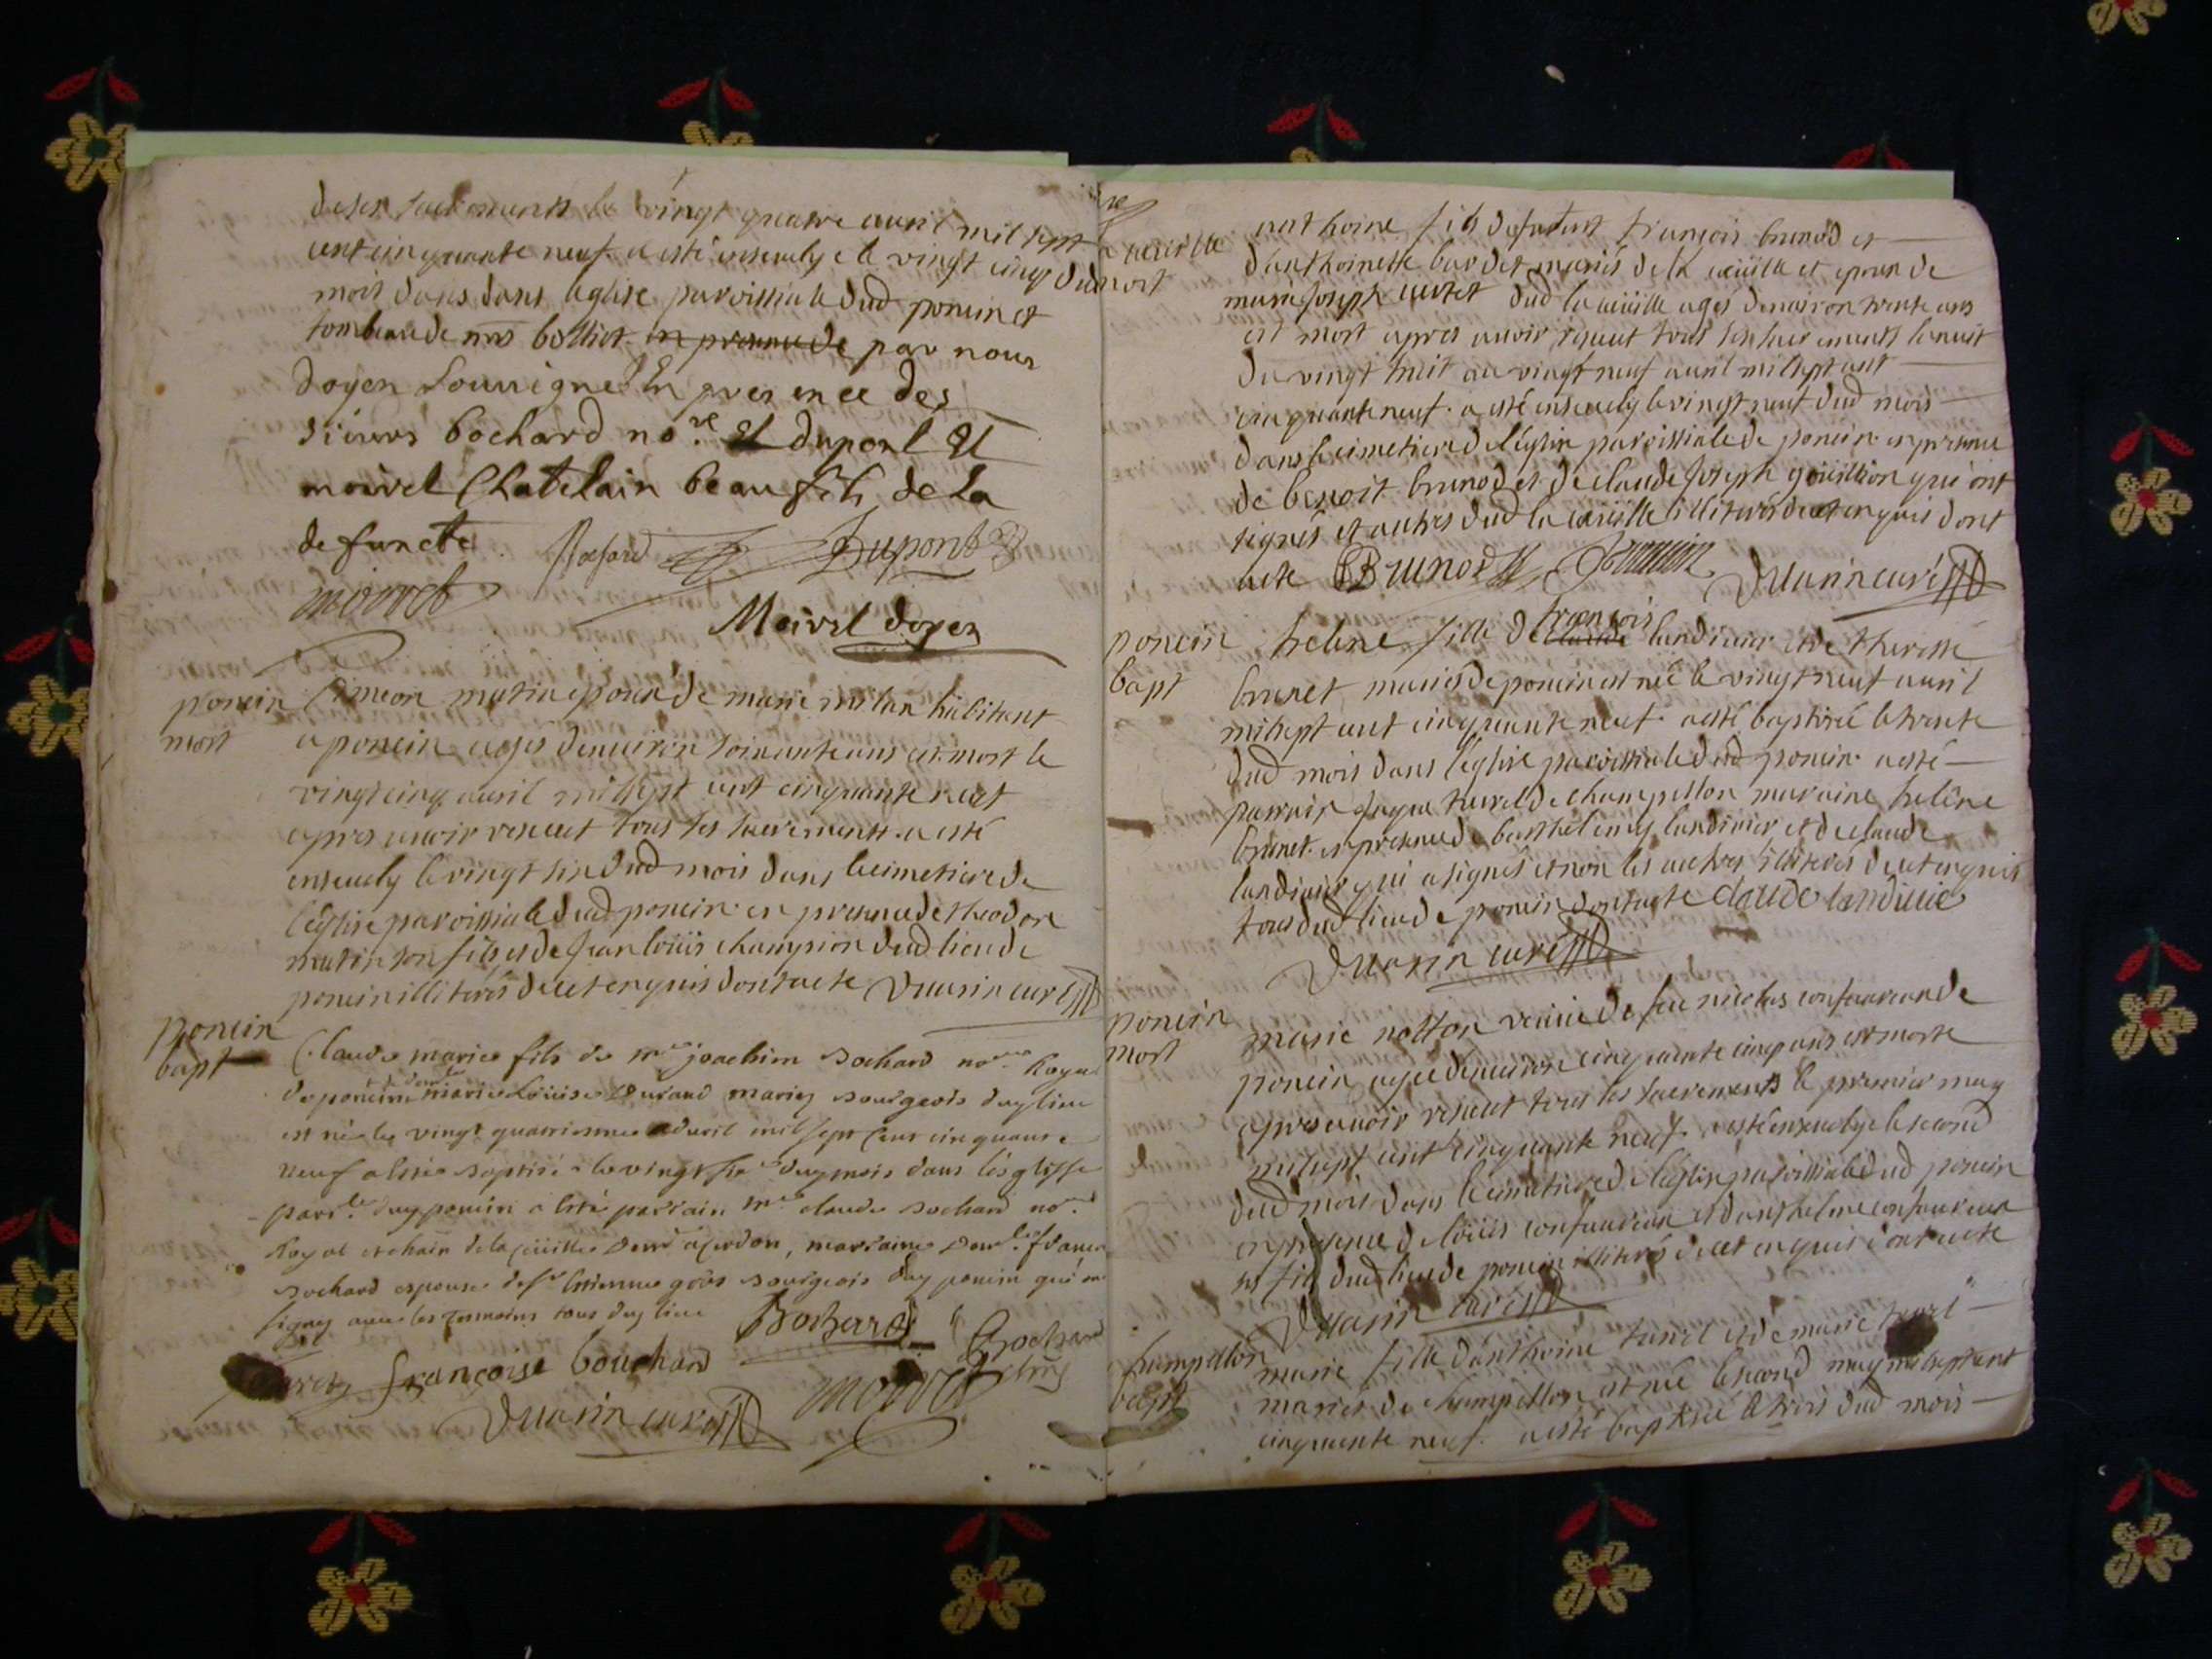 de ses sacrements le vingt quatre avril mil sept
cent cinquante neuf a esté ensevely le vingt cinq dud
mois dans dans leglise paroissiale dud poncin et
tombeau de mrs bolliet in presence de par nous
doyen soussigné En presence des
sieurs bochard nore et dupont Et
moirel Chatelain beau fils de la
defuncte. Dupont
moirel
Moirel doyen
poncin
mort
Simeon mutin epoux de marie milan habitant
a poncin agés denviron soixante ans est mort le
vingt cinq avril mil sept cent cinquante neuf
apres avoir reseut tous ses sacrements a esté
ensevely le vingt six dud mois dans le cimetiere de
leglise paroissiale dud poncin en presence de theodore
mutin son fils et de jean loüis champion dud lieu de
poncin illiterés de cet enquis dont acte Duarin curé
poncin
bapt
Claude marie fils de mre joachim bochard nore Royal
de poncin et de dame marie Loüise Durand mariez bourgeois duy lieu
est né le vingt quatriesme d'avril mil sept Cent cinquante
neuf a esté baptisé le vingt duy mois dans lesglisse
parle duy poncin a esté parrain mre claude bochard nore
Royal et chain de la cüeille demt a cerdon, marraine francoise
bochard espouse de sr estienne goüs bourgeois duy poncin qui ont
signez avec les temoins tous duy lieu
Bochard Bochard
françoise bouchard
Duarin curé moirel
la cueille
mort
anthoine fils defunt françois brunod et
danthoinette bardet mariés de la cüeille et epoux de
marie joseph dud la cüeille agés denviron trente ans
est mort apres avoir reseut tous ses sacrements la nuit
du vingt huit au vingt neuf avril mil sept cent
cinquante neuf. a esté ensevely le vingt neuf dud mois
dans le cimetiere de leglise paroissiale de poncin en presence
de benoit brunod et de claude joseph goüillion qui ont
signés et autres dud la cüeille illiterés de cet enquis dont
acte Brunod Duarin curé
poncin
bapt
helene fille de claude françois landivier et de theresse
brunet mariés de poncin est née le vingt neuf avril
mil sept cent cinquante neuf. a esté baptisée le trente
dud mois dans léglise paroissiale dud poncin. a esté
parrain jaque turel de champellon maraine heléne
brunet. en presence de barthelemy landivier et de claude
landivier qui a signés et non les autres illiterés de cet enquis
tous dud lieu de poncin dont acte claude landivie
Duarin curé
poncin
mort
marie notton veuve de feu nicolas confavreux de
poncin agée denviron cinquante cinq ans est morte
apres avoir reseut tous les sacrements le premier may
mil sept cent cinquante neuf. a esté ensevelye le second
dud mois dans le cimetiere de léglise paroissiale dud poncin
en presence de loüis confavreux et danthelme confavreux
ses fils dud lieu de poncin illiterés de cet enquis dont acte
Duarin curé
champellon
bapt
marie fille danthoine turel et de marie turel
mariés de champellon est née le second may mil sept cent
cinquante neuf. a esté baptisée le trois dud mois